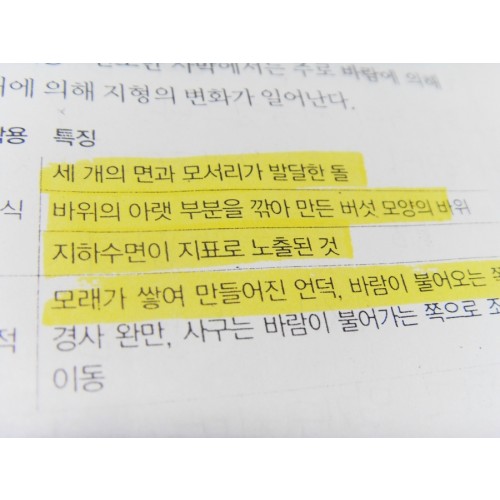 사막에서는 주로 바람에 의해
에 의해 지형의 변화가 일어난다.
작용 특징
세 개의 면과 모서리가 발달한 돌
식 바위의 아랫 부분을 깎아 만든 버섯 모양의 바위
지하수면이 지표로 노출된 것
모래가 쌓여 만들어진 언덕, 바람이 불어오는 쪽
적 경사 완만, 사구는 바람이 불어가는 쪽으로
이동